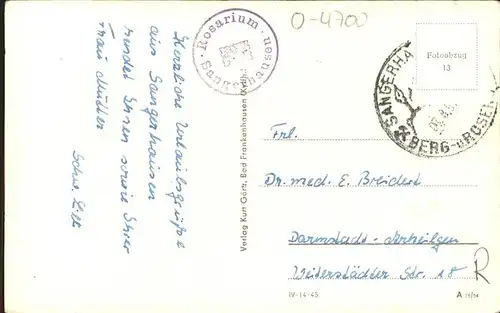 O-4700
Rosarium
Sangerhausen
Fotoabzug
13
SANGERHA
BERG- u. ROSEN
Herzliche Urlaubsgrüße
aus Sangerhausen
sendet Ihnen sowie Ihrer
Frau Mutter
Schw. Elli
Verlag Kurt Görtz, Bad Frankenhausen (Kyffh.)
Frl.
Dr. med. E. Breidert
Darmstadt-Arheilgen
Weiterstädter Str. 18
R
IV-14-45
A